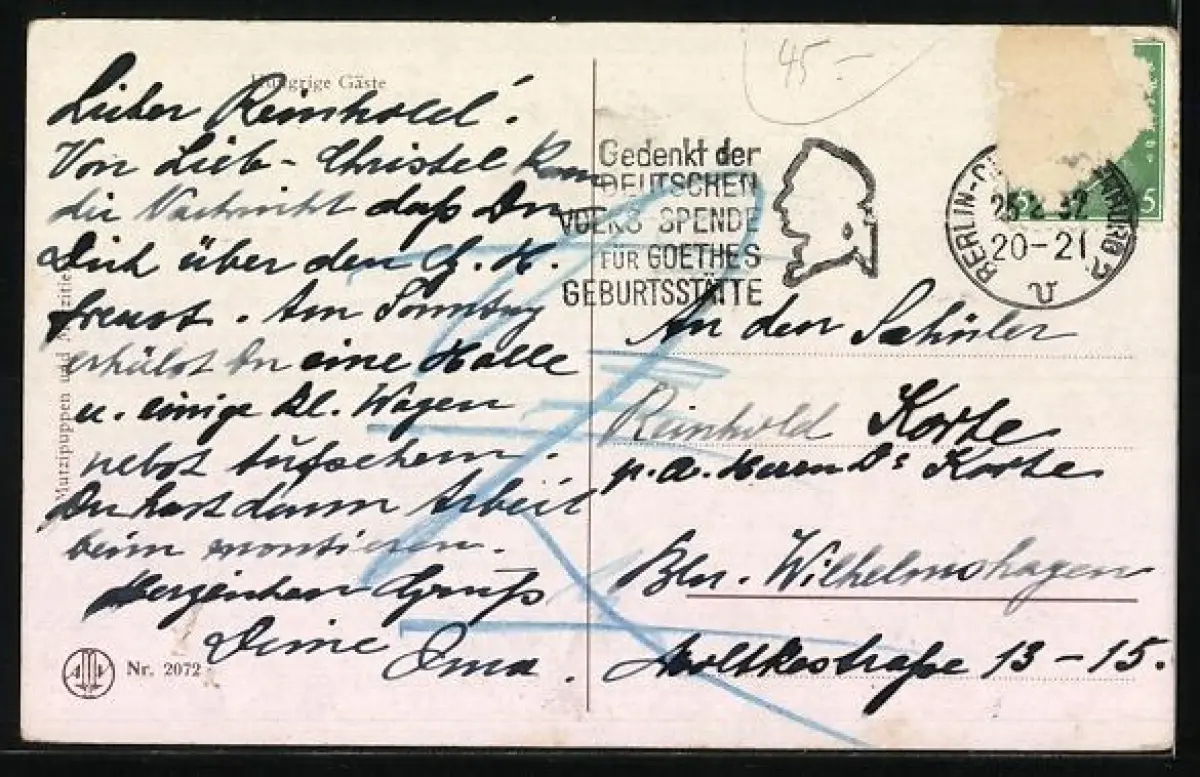 Hungrige Gäste
Lieber Reinhold!
Von Lieb-Christel kam
die Nachricht daß Du
Dich über den G. H.
freust. Am Sonntag
erhälst Du eine Halle
u. einige kl. Wagen
nebst
Du hast dann Arbeit
beim montieren.
Herzlichen Gruß
Deine Oma.
Mutzipuppen und
Nr. 2072
45.-
Gedenkt der
DEUTSCHEN
VOLKS SPENDE
FÜR GOETHES
GEBURTSSTÄTTE
BERLIN-CH
20-21
5
An den Schüler
Reinhold Korte
p. A. Herrn Dr Korte
Bln. Wilhelmshagen
Moltkestraße 13-15.